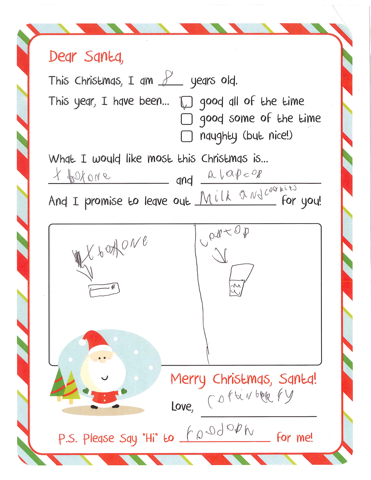 Dear Santa,
This Christmas, I am 8 years old.
This year, I have been... good all of the time
good some of the time
naughty (but nice!)
What I would like most this Christmas is...
xboxone and a laptop
And I promise to leave out Milk and cookies for you!
xboxone
Laptop
Merry Christmas, Santa!
Love,
P.S. Please Say "Hi" to for me!